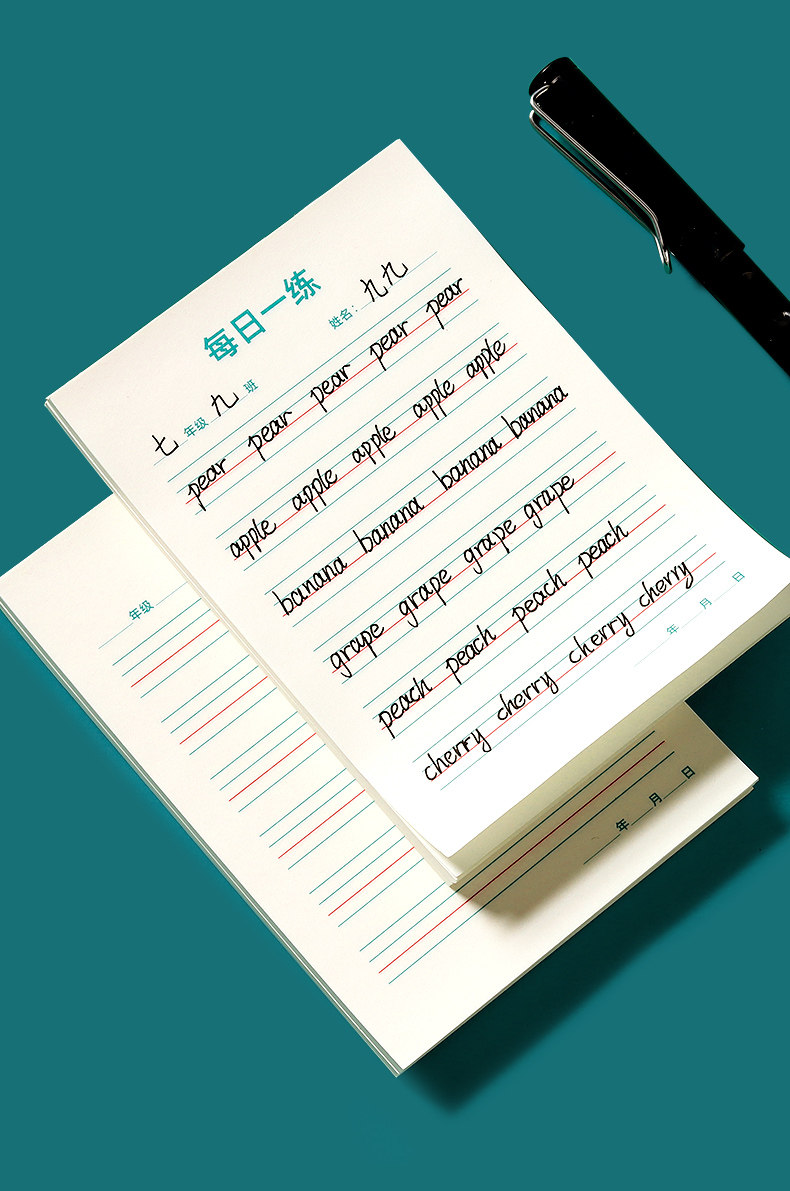 每日一练
七 年级 九 班 姓名：九九
pear pear pear pear pear
apple apple apple apple apple
banana banana banana banana
grape grape grape grape
peach peach peach peach
cherry cherry cherry cherry
年 月 日
年级
年 月 日